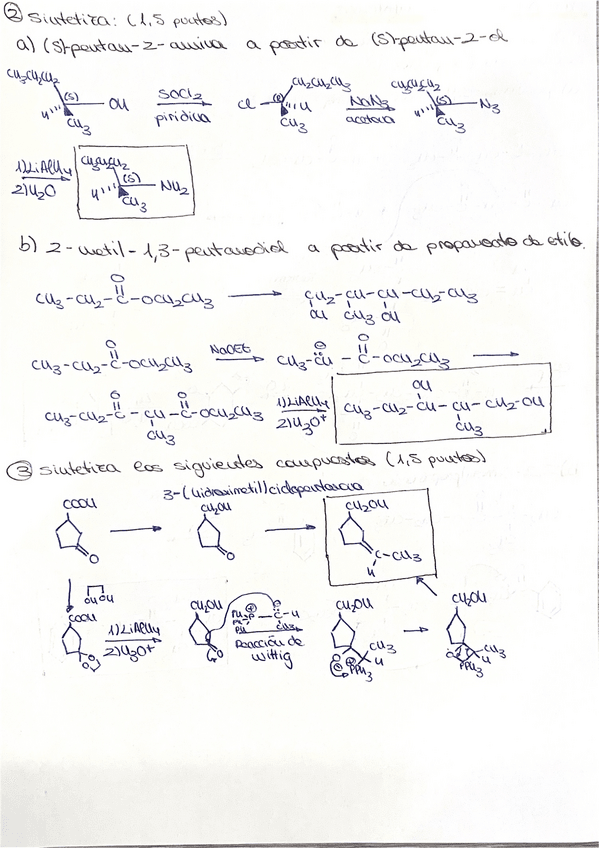 ② Sintetiza: (1,5 puntos)
a) (S)-pentan-2-amina a partir de (S)-pentan-2-ol
CH₃CH₂CH₂ (S) OH H CH₃ SOCl₂ piridina Cl (R) CH₂CH₂CH₃ H CH₃ NaN₃ acetona CH₃CH₂CH₂ (S) N₃ H CH₃
1) LiAlH₄ 2) H₂O CH₃CH₂CH₂ (S) NH₂ H CH₃
b) 2-metil-1,3-pentanodiol a partir de propanoato de etilo.
CH₃-CH₂-C(=O)-OCH₂CH₃ → CH₂(OH)-CH(CH₃)-CH(OH)-CH₂-CH₃
CH₃-CH₂-C(=O)-OCH₂CH₃ NaOEt → CH₃-CH⊖-C(=O)-OCH₂CH₃ →
CH₃-CH₂-C(=O)-CH(CH₃)-C(=O)-OCH₂CH₃ 1) LiAlH₄ 2) H₃O⁺ → CH₃-CH₂-CH(OH)-CH(CH₃)-CH₂-OH
③ Sintetiza los siguientes compuestos (1,5 puntos)
3-(hidroximetil)ciclopentanona
COOH O → CH₂OH O → CH₂OH C-CH₃ H
OH OH
COOH O O 1) LiAlH₄ 2) H₃O⁺ CH₂OH O Ph Ph Ph P⊕ -C⊖-H CH₃ Reacción de Wittig CH₂OH O⊖ ⊕PPh₃ CH₃ H → CH₂OH O PPh₃ CH₃ H